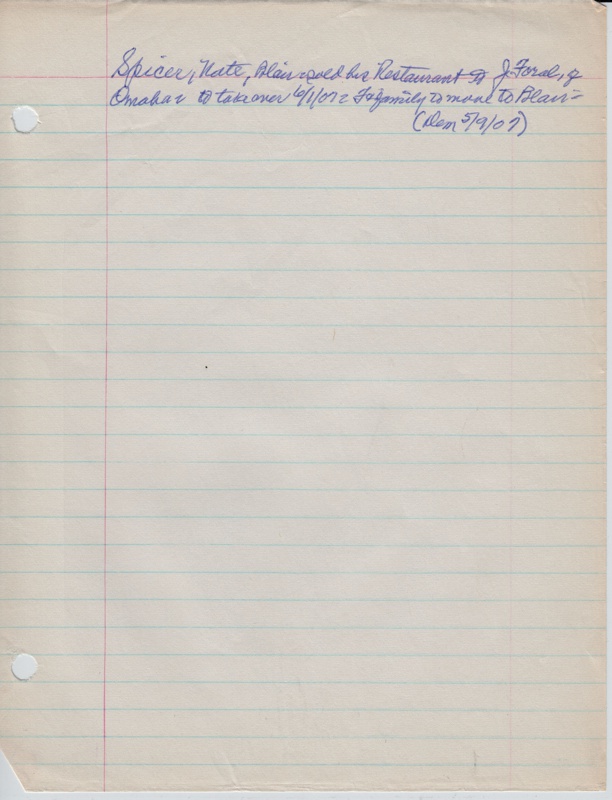 Spicer, Nate, Blair = sold his Restaurant to J. Foral, of
Omaha = to take over 6/1/07 = F & family to move to Blair =
(Dem 5/9/07)